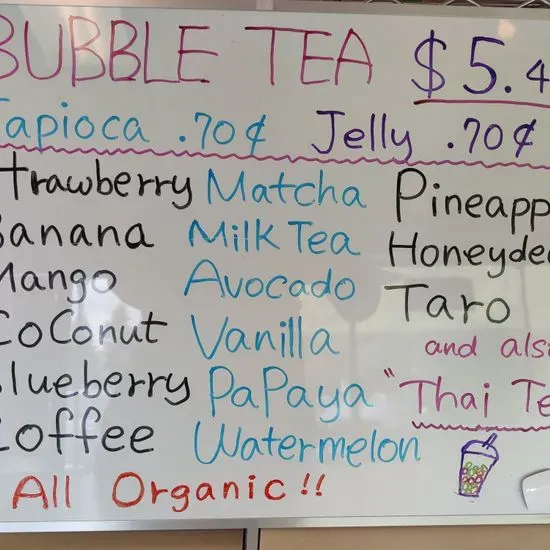 BUBBLE TEA $5.4
Tapioca .70¢ Jelly .70¢
trawberry Matcha Pineapp
Banana Milk Tea Honeyde
Mango Avocado Taro
CoConut Vanilla and als
Blueberry PaPaya "Thai Te
Coffee Watermelon
All Organic!!